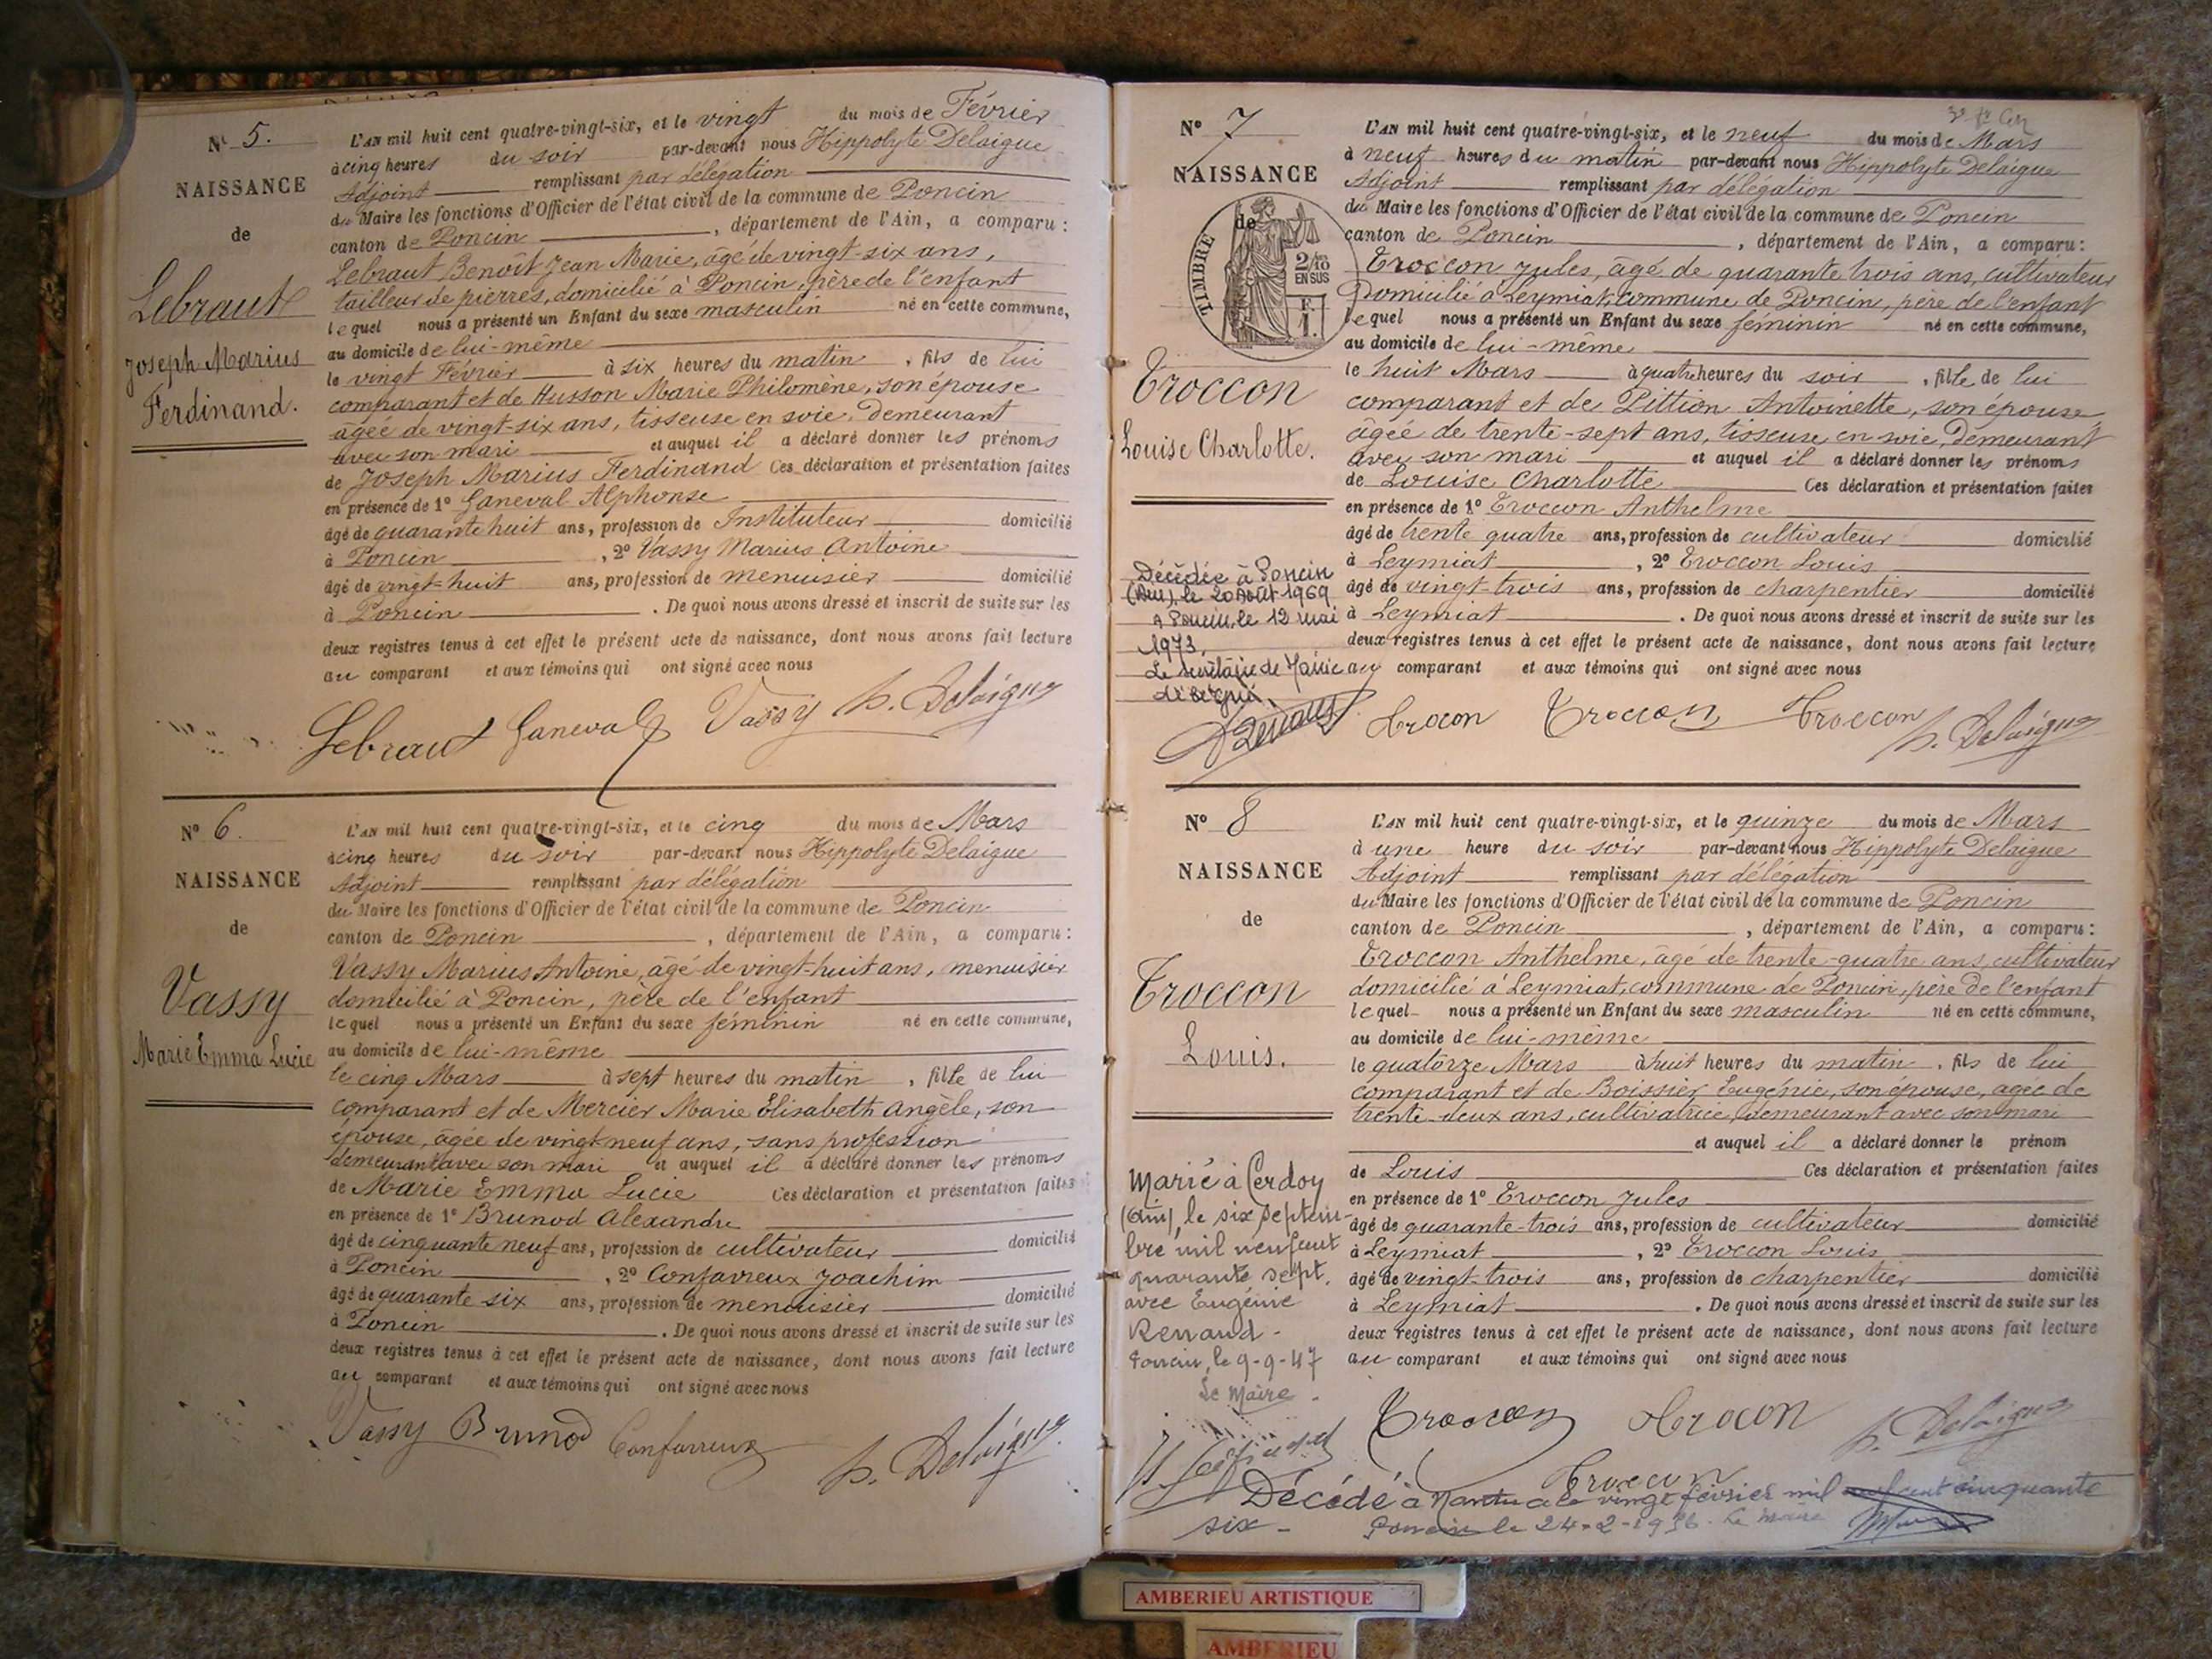 N° 5.
NAISSANCE
de
Lebraut
Joseph Marius
Ferdinand.
L'AN mil huit cent quatre-vingt-six, et le vingt du mois de Février
à cinq heures du soir par-devant nous Hippolyte Delaigue
Adjoint remplissant par délégation
du Maire les fonctions d'Officier de l'état civil de la commune de Poncin
canton de Poncin, département de l'Ain, a comparu :
Lebraut Benoît Jean Marie, âgé de vingt-six ans,
tailleur de pierres, domicilié à Poncin, père de l'enfant
lequel nous a présenté un Enfant du sexe masculin né en cette commune,
au domicile de lui-même
le vingt Février à six heures du matin, fils de lui
comparant et de Husson Marie Philomène, son épouse
âgée de vingt-six ans, tisseuse en soie, demeurant
avec son mari et auquel il a déclaré donner les prénoms
de Joseph Marius Ferdinand Ces déclaration et présentation faites
en présence de 1° Ganeval Alphonse
âgé de quarante huit ans, profession de Instituteur domicilié
à Poncin, 2° Vassy Marius Antoine
âgé de vingt-huit ans, profession de menuisier domicilié
à Poncin. De quoi nous avons dressé et inscrit de suite sur les
deux registres tenus à cet effet le présent acte de naissance, dont nous avons fait lecture
au comparant et aux témoins qui ont signé avec nous
Lebraut Ganeval Vassy h. Delaigue
N° 6.
NAISSANCE
de
Vassy
Marie Emma Lucie
L'AN mil huit cent quatre-vingt-six, et le cinq du mois de Mars
à cinq heures du soir par-devant nous Hippolyte Delaigue
Adjoint remplissant par délégation
du Maire les fonctions d'Officier de l'état civil de la commune de Poncin
canton de Poncin, département de l'Ain, a comparu :
Vassy Marius Antoine, âgé de vingt-huit ans, menuisier
domicilié à Poncin, père de l'enfant
lequel nous a présenté un Enfant du sexe féminin né en cette commune,
au domicile de lui-même
le cinq Mars à sept heures du matin, fille de lui
comparant et de Mercier Marie Elisabeth Angèle, son
épouse, âgée de vingt-neuf ans, sans profession
demeurant avec son mari et auquel il a déclaré donner les prénoms
de Marie Emma Lucie Ces déclaration et présentation faites
en présence de 1° Brunod Alexandre
âgé de cinquante neuf ans, profession de cultivateur domicilié
à Poncin, 2° Confavreux Joachim
âgé de quarante six ans, profession de menuisier domicilié
à Poncin. De quoi nous avons dressé et inscrit de suite sur les
deux registres tenus à cet effet le présent acte de naissance, dont nous avons fait lecture
au comparant et aux témoins qui ont signé avec nous
Vassy Brunod Confavreux h. Delaigue
N° 7
NAISSANCE
de
TIMBRE
2/10
EN SUS
F.
1.
Troccon
Louise Charlotte.
Décédée à Poncin
(Ain), le 20 Août 1969
A Poncin, le 12 mai
1973,
Le Secrétaire de Mairie
délégué,
L'AN mil huit cent quatre-vingt-six, et le neuf du mois de Mars
à neuf heures du matin par-devant nous Hippolyte Delaigue
Adjoint remplissant par délégation
du Maire les fonctions d'Officier de l'état civil de la commune de Poncin
canton de Poncin, département de l'Ain, a comparu :
Troccon Jules, âgé de quarante trois ans, cultivateur
Domicilié à Leymiat, commune de Poncin, père de l'enfant
lequel nous a présenté un Enfant du sexe féminin né en cette commune,
au domicile de lui-même
le huit Mars à quatre heures du soir, fille de lui
comparant et de Pittion Antoinette, son épouse
âgée de trente-sept ans, tisseuse en soie, demeurant
avec son mari et auquel il a déclaré donner les prénoms
de Louise Charlotte Ces déclaration et présentation faites
en présence de 1° Troccon Anthelme
âgé de trente quatre ans, profession de cultivateur domicilié
à Leymiat, 2° Troccon Louis
âgé de vingt-trois ans, profession de charpentier domicilié
à Leymiat. De quoi nous avons dressé et inscrit de suite sur les
deux registres tenus à cet effet le présent acte de naissance, dont nous avons fait lecture
au comparant et aux témoins qui ont signé avec nous
Trocon Troccon Troccon h. Delaigue
N° 8
NAISSANCE
de
Troccon
Louis.
Marié à Cerdon
(Ain) le six septem-
bre mil neuf cent
quarante sept.
avec Eugénie
Renand -
Poncin, le 9-9-47
Le Maire -
L'AN mil huit cent quatre-vingt-six, et le quinze du mois de Mars
à une heure du soir par-devant nous Hippolyte Delaigue
Adjoint remplissant par délégation
du Maire les fonctions d'Officier de l'état civil de la commune de Poncin
canton de Poncin, département de l'Ain, a comparu :
Troccon Anthelme, âgé de trente-quatre ans, cultivateur
domicilié à Leymiat, commune de Poncin, père de l'enfant
lequel nous a présenté un Enfant du sexe masculin né en cette commune,
au domicile de lui-même
le quatorze Mars à huit heures du matin, fils de lui
comparant et de Boissier Eugénie, son épouse, agée de
trente-deux ans, cultivatrice, demeurant avec son mari
et auquel il a déclaré donner le prénom
de Louis Ces déclaration et présentation faites
en présence de 1° Troccon Jules
âgé de quarante-trois ans, profession de cultivateur domicilié
à Leymiat, 2° Troccon Louis
âgé de vingt-trois ans, profession de charpentier domicilié
à Leymiat. De quoi nous avons dressé et inscrit de suite sur les
deux registres tenus à cet effet le présent acte de naissance, dont nous avons fait lecture
au comparant et aux témoins qui ont signé avec nous
Troccon Trocon h. Delaigue
Troccon
Décédé à Nantua le vingt février mil neuf cent cinquante
six - Poncin le 24-2-1956. Le Maire
AMBERIEU ARTISTIQUE
AMBERIEU